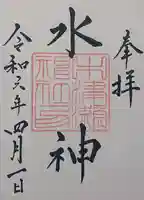 奉拝
水神
令和六年四月一日